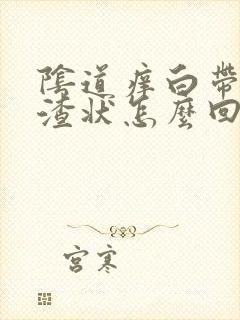 陰道痒白帶
渣狀怎麼回
宮寒